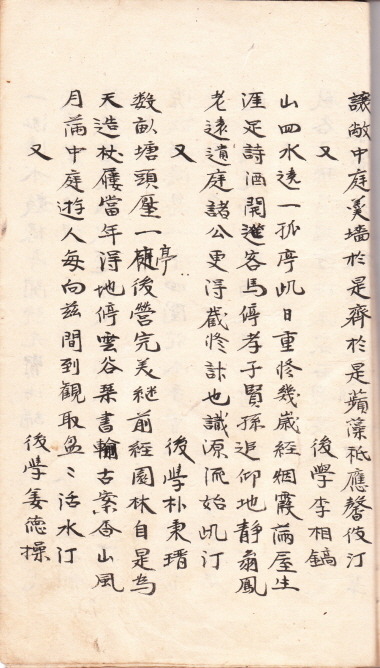 讓敞中庭羹墻於是齊於是蘋藻祗應馨汀
又 後學李相鎬
山四水遶一孤亭此日重修幾歲經烟霞滿屋生
涯足詩酒開客馬停孝子賢孫追仰地靜翁鳳
老遠遺庭諸公更得蔵修計也識源流始此汀
又 後學朴東瑨
数畝塘頭壓一亭後營完美継前經園林自是為
天造杖屨當年得地停雲谷琴書輸古案杏山風
月滿中庭遊人每向玆間到観取盈〻活水汀
又 後學姜德操